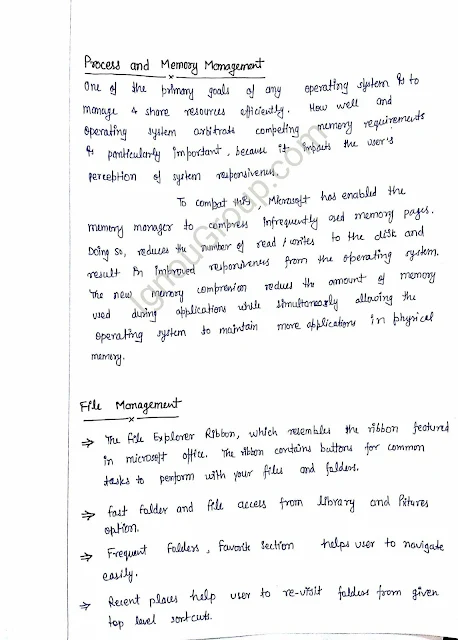 Process and Memory Management
One of the primary goals of any operating system is to
manage & share resources efficiently. How well and
operating system arbitrate competing memory requirements
is particularly important, because it impacts the user's
perception of system responsivenes.
To combat this, Microsoft has enabled the
memory manager to compress infrequently used memory pages.
Doing so, reduces the number of read & writes to the disk and
result in improved responsivenes from the operating system.
The new memory compression reduces the amount of memory
used during applications while simultaneously allowing the
operating system to maintain more applications in physical
memory.
File Management
⇒ The File Explorer Ribbon, which resembles the ribbon featured
in microsoft office. The ribbon contains buttons for common
tasks to perform with your files and folders.
⇒ fast folder and file access from library and Pictures
option.
⇒ Frequent Folders, Favorite section helps user to navigate
easily.
⇒ Recent places help user to re-visit folders from given
top level sortcuts.
IgnouGroup.com